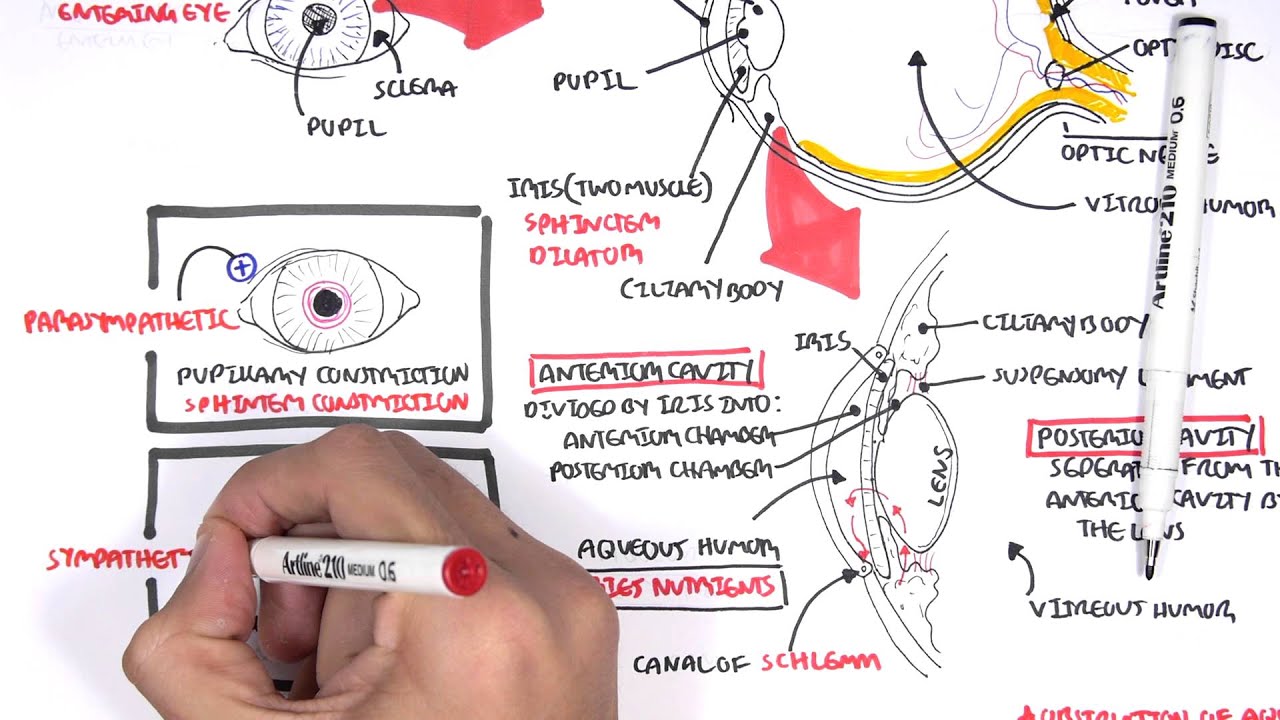 ENTERING EYE
SCLERA
PUPIL
PUPIL
IRIS (TWO MUSCLE)
SPHINCTER
DILATOR
CILIARY BODY
OPTIC
VITRO HUMOR
PARASYMPATHETIC
+
PUPILLARY CONSTRICTION
SPHINTER CONSTRICTION
SYMPATHET
ANTERIOR CAVITY
DIVIDED BY IRIS INTO:
ANTERIOR CHAMBER
POSTERIOR CHAMBER
AQUEOUS HUMOR
NUTRIENTS
CANAL OF SCHLEMM
IRIS
CILIARY BODY
SUSPENSORY
LENS
POSTERIO CAVITY
SEPERAT FROM
ANTERIO CAVITY
THE LENS
VITREOUS HUMOR
Artline 210 MEDIUM 0.6
Artline 210 MEDIUM 0.6
OF